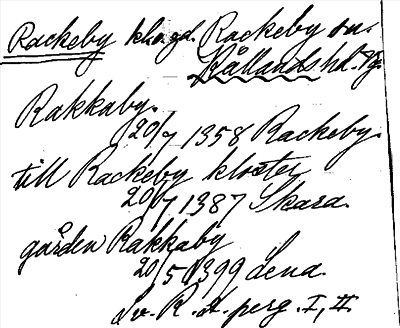 Rackeby kh. gd. Rackeby sn.
Kållands hd. Vg.
Rakkaby.
20/7 1358 Rackeby.
till Rackeby kloster
20/7 1387 Skara.
gården Rakkaby
20/5 1399 Lena.
Sv. R. A. perg. I, II.